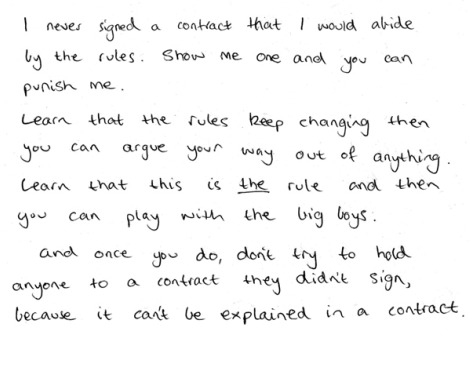 I never signed a contract that I would abide
by the rules. Show me one and you can
punish me.
Learn that the rules keep changing then
you can argue your way out of anything.
Learn that this is the rule and then
you can play with the big boys.
And once you do, don't try to hold
anyone to a contract they didn't sign,
because it can't be explained in a contract.